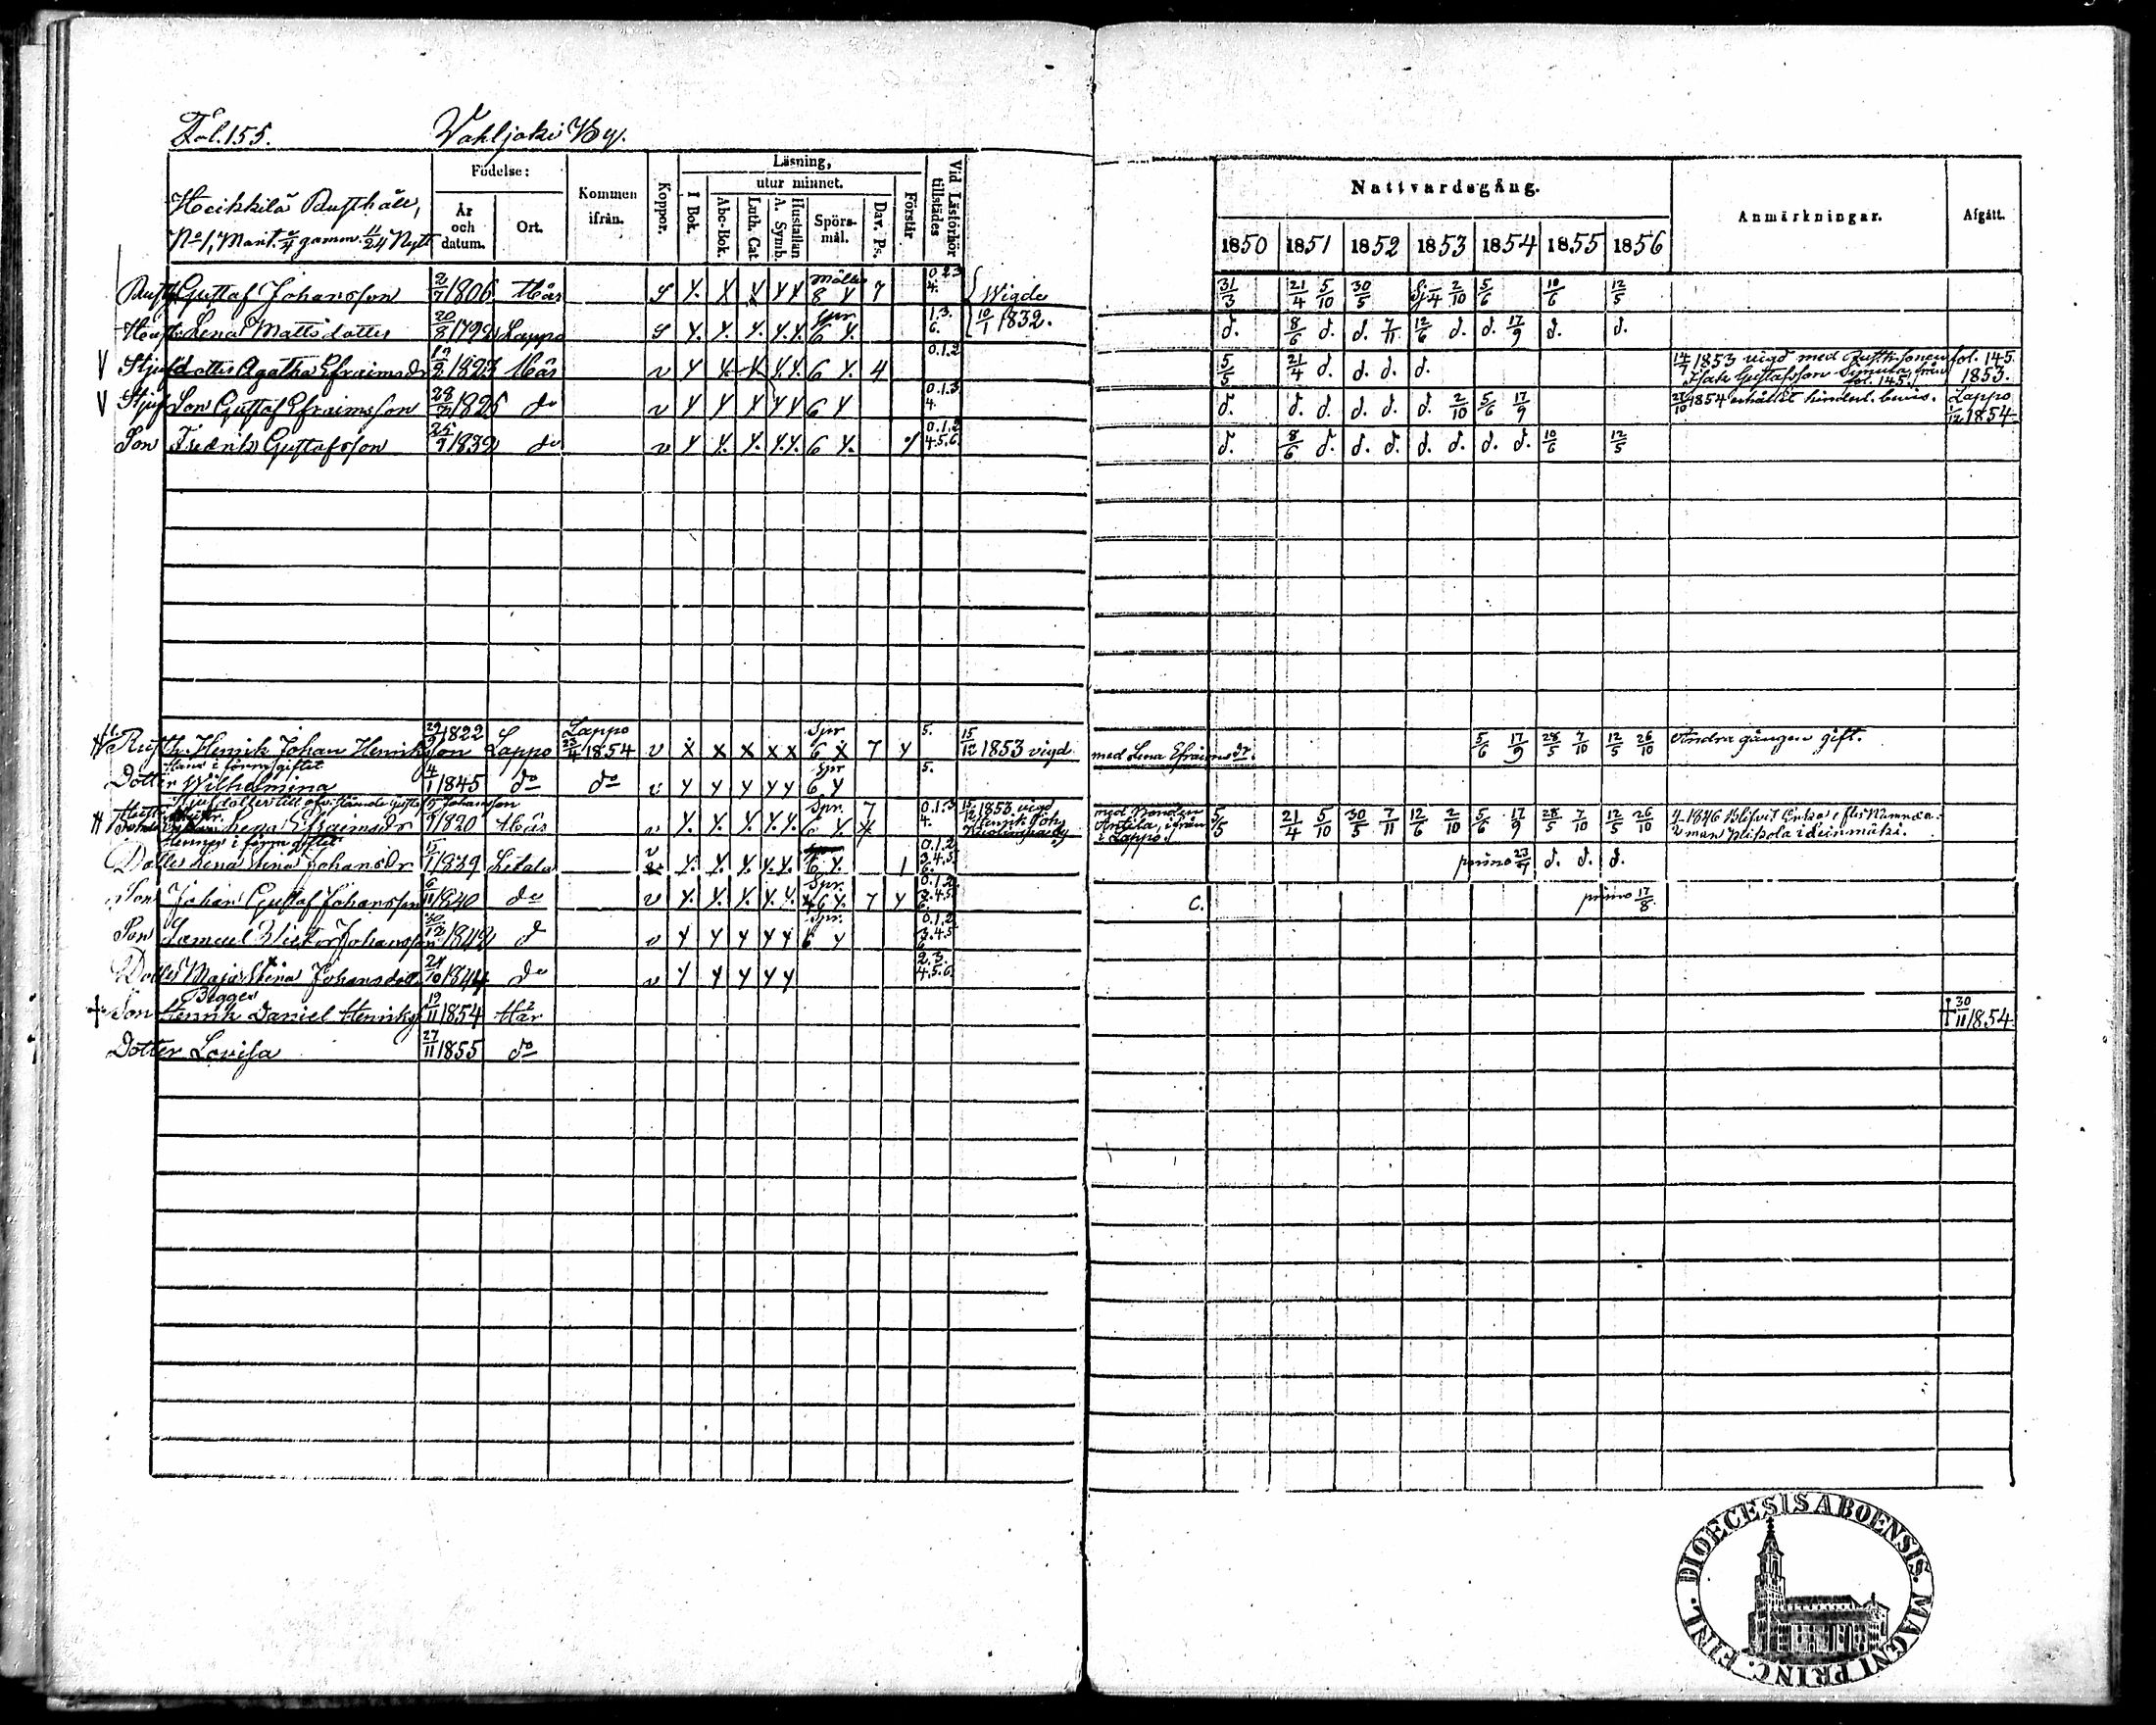 Fol. 155. Wahljoki By.
Heikkilä Rusthåll,
No 1, Mant. gamm. 11/24 Nytt
Födelse:
År och datum.
Ort.
Kommen ifrån.
Koppor.
Läsning,
I Bok.
utur minnet.
Abc-Bok.
Luth. Cat
Hustaflan A. Symb.
Spörs-mål.
Dav. Ps.
Förstår
Vid Läsförhör tillstädes
Nattvardsgång.
1850 1851 1852 1853 1854 1855 1856
Anmärkningar.
Afgått.
Gustaf Johansson 2/7 1806 Här S Y. Y Y Y Y 8 Y 7 { Wigde 31/3 21/4 5/10 30/5 2/10 5/6 10/6 12/5
Lena Mattsdotter 20/8 1792 Lappo S Y. Y. Y. Y. Y. 6 Y. 1.3. 6. 10/1 1832. d. 8/6 d. d. 7/11 12/6 d. d. 17/9 d. d.
V Stjufdotter Agatha Efraimsdr 1823 Här v Y Y. Y Y. Y. 6 Y. 4 0.1.2 5/5 21/4 d. d. d. d. 1853 vigd med Rusth.sonen fol. 145.
Isak Gustafsson Simula från fol. 145. 1853.
V Stjuf Son Gustaf Efraimsson 1826 do v Y Y Y Y Y 6 Y 0.1.3 4. d. d. d. d. d. d. 2/10 5/6 17/9 27/10 1854 erhållit hinderl. bevis. Lappo 1854.
Son Fredrik Gustafsson 1832 do v Y Y. Y. Y. Y. 6 Y. Y 0.1.2 4.5.6 d. 8/6 d. d. d. d. d. d. d. 10/6 12/5
Rusth. Henrik Johan Henriksson 29/9 1822 Lappo Lappo 1854 v X X X X X Spr 6 X 7 Y 5. 15/12 1853 vigd med Lena Efraimsdr. 5/6 17/9 28/5 7/10 12/5 26/10 Andra gången gift.
Hans i förra giftet
Dotter Wilhelmina 4/1 1845 do do v Y Y Y Y Y Spr 6 Y 5.
Stjufdotter till ofvanstående Gustaf Johansson
Lena Efraimsdr 1820 Här v Y. Y. Y. Y. Y. Spr. 6 Y. 7 0.1.3 4. 15/12 1853 vigd
Henrik Joh. med Bonden Antila, ifrån i Lappo. 5/5 21/4 5/10 30/5 7/11 12/6 2/10 5/6 17/9 28/5 7/10 12/5 26/10 1846 blifvit Enka efter Nämndeman
Hennes i förra giftet
Dotter Lena Stina Johansdr 15/1 1839 Letala v Y. Y. Y. Y. Y. 6 Y. 1 0.1.2 3.4.5. 6. primo d. d. d.
Son Johan Gustaf Johansson 6/11 1840 do v Y. Y. Y. Y. Y. Spr. 6 Y. 7 Y 0.1.2 3.4.5 6. C. primo 17/8
Son Samuel Victor Johansson 30/12 1842 d v Y Y Y Y Y Spr. 6 Y 0.1.2 3.4.5 6.
Dotter Maja Stina Johansdotter 1844 do v Y Y Y Y Y 2.3. 4.5.6
Begges
† Son Henrik Daniel Henriksson 19/11 1854 Här † 30/11 1854.
Dotter Lovisa 27/11 1855 do
DIOECESIS ABOENSIS. MAGNI PRINC. FINL.